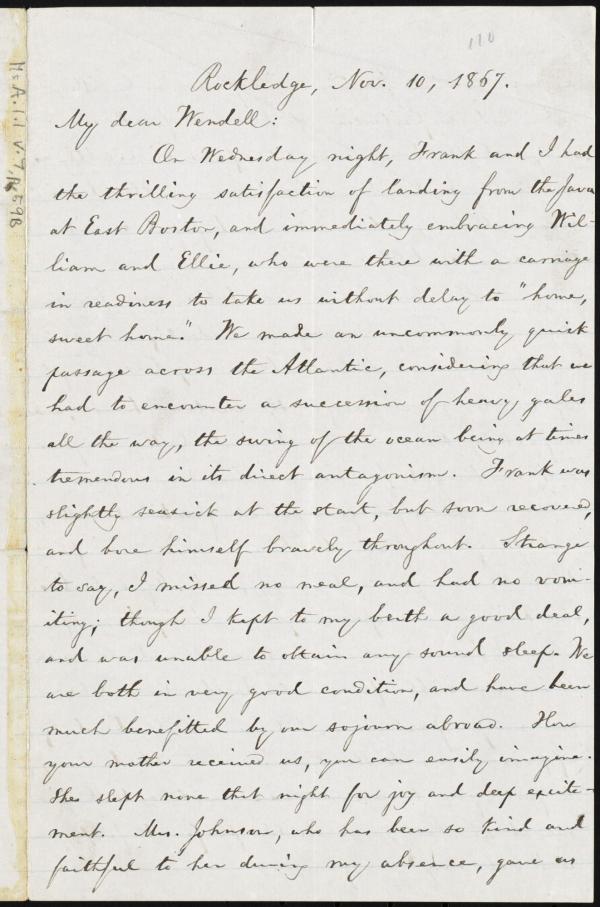 110
Rockledge, Nov. 10, 1867.
My dear Wendell:
On Wednesday night, Frank and I had
the thrilling satisfaction of landing from the Java
at East Boston, and immediately embracing Wil-
liam and Ellie, who were there with a carriage
in readiness to take us without delay to "home,
sweet home." We made an uncommonly quick
passage across the Atlantic, considering that we
had to encounter a succession of heavy gales
all the way, the swing of the ocean being at times
tremendous in its direct antagonism. Frank was
slightly seasick at the start, but soon recovered,
and bore himself bravely throughout. Strange
to say, I missed no meal, and had no vom-
iting; though I kept to my berth a good deal,
and was unable to obtain any sound sleep. We
are both in very good condition, and have been
much benefitted by our sojourn abroad. How
your mother received us, you can easily imagine.
She slept none that night for joy and deep excite-
ment. Mrs. Johnson, who has been so kind and
faithful to her during my absence, gave us
Ms.A.1.1 V.7, p.59B